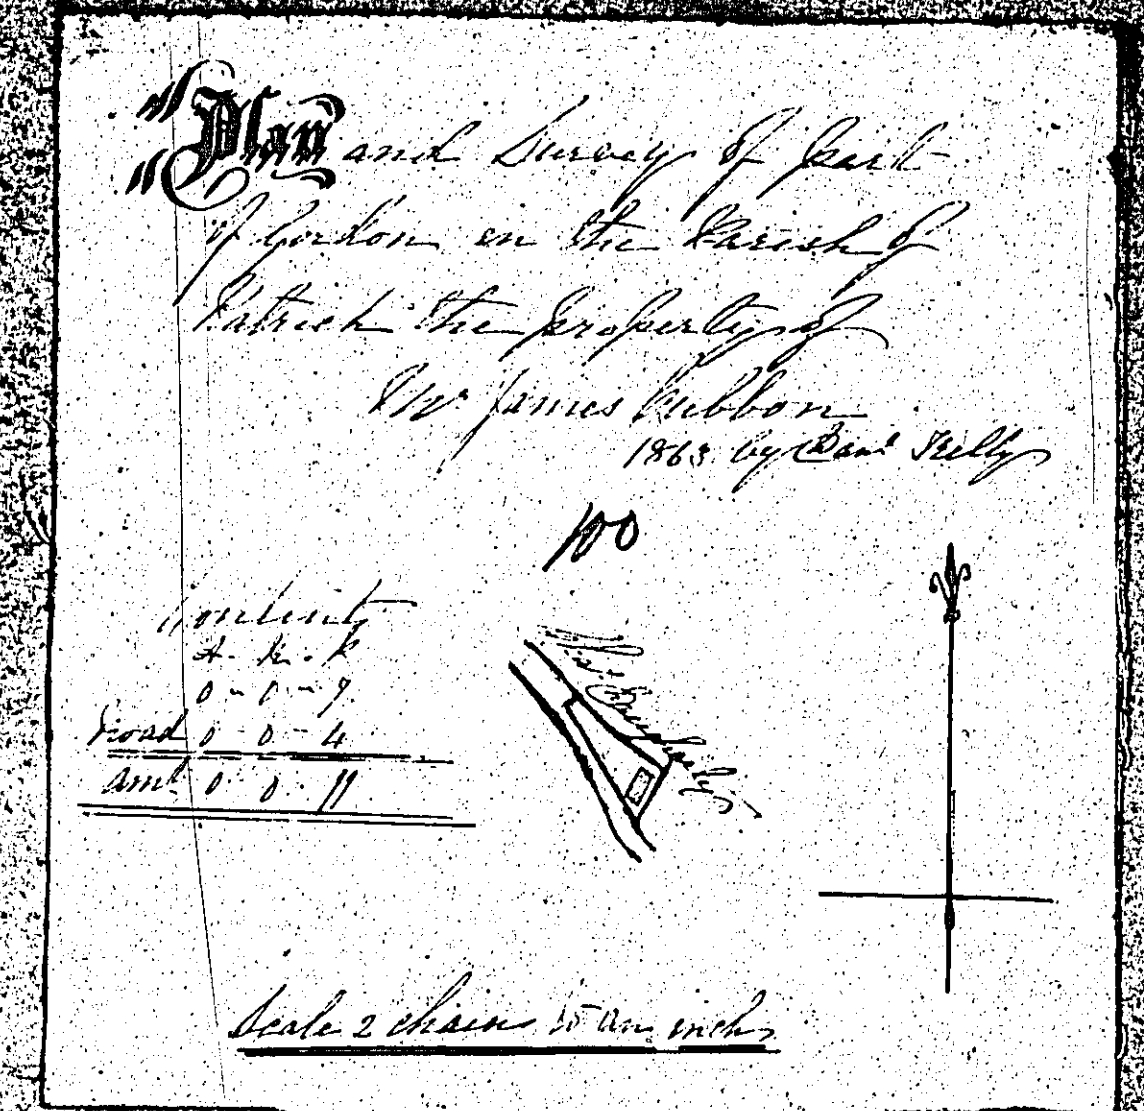 Plan and Survey of part
of Gordon in the Parish of
Patrick the property of
Mr James Cubbon
1863 by Danl Kelly
100
Content
A. R. P
0 - 0 - 9
Road 0 - 0 - 4
amt 0 0 11
Scale 2 chains to an inch